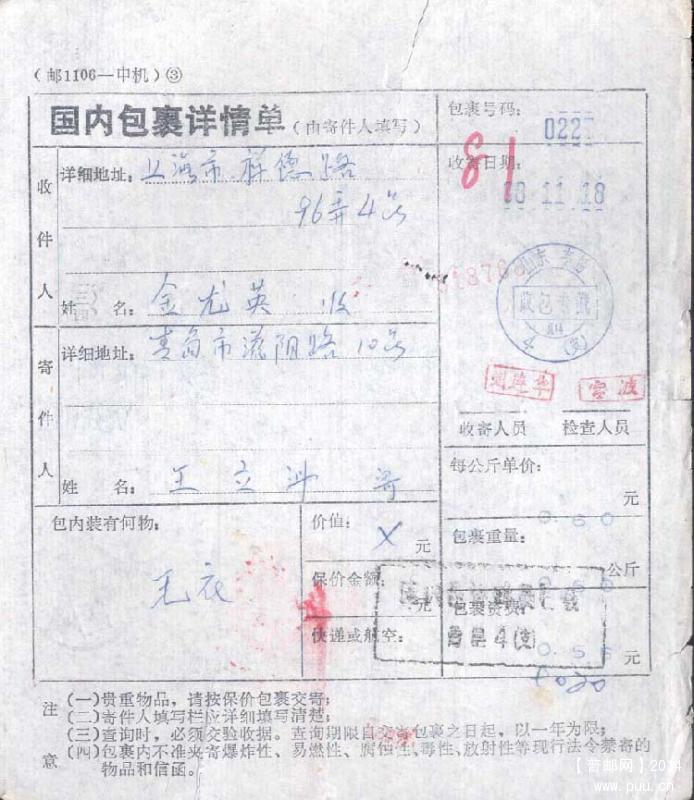 （邮1106—中机）③
国内包裹详情单（由寄件人填写）
收件人
详细地址：上海市祥德路
96弄4号
姓名：金龙英 收
寄件人
详细地址：青岛市滋阳路10号
姓名：王立 寄
包内装有何物：
毛衣
价值： X 元
保价金额： 元
快递或航空：
包裹号码：
022
81
收寄日期：
11 18
山东 青岛
收寄人员
检查人员
每公斤单价：
0.60 元
包裹重量：
公斤
包裹资费：
0.55 元
青岛4(支)
注意
（一）贵重物品，请按保价包裹交寄；
（二）寄件人填写栏应详细填写清楚；
（三）查询时，必须交验收据。查询期限自交寄包裹之日起，以一年为限；
（四）包裹内不准夹寄爆炸性、易燃性、腐蚀性、毒性、放射性等现行法令禁寄的
物品和信函。
【普邮网】2014
www.puu.cn